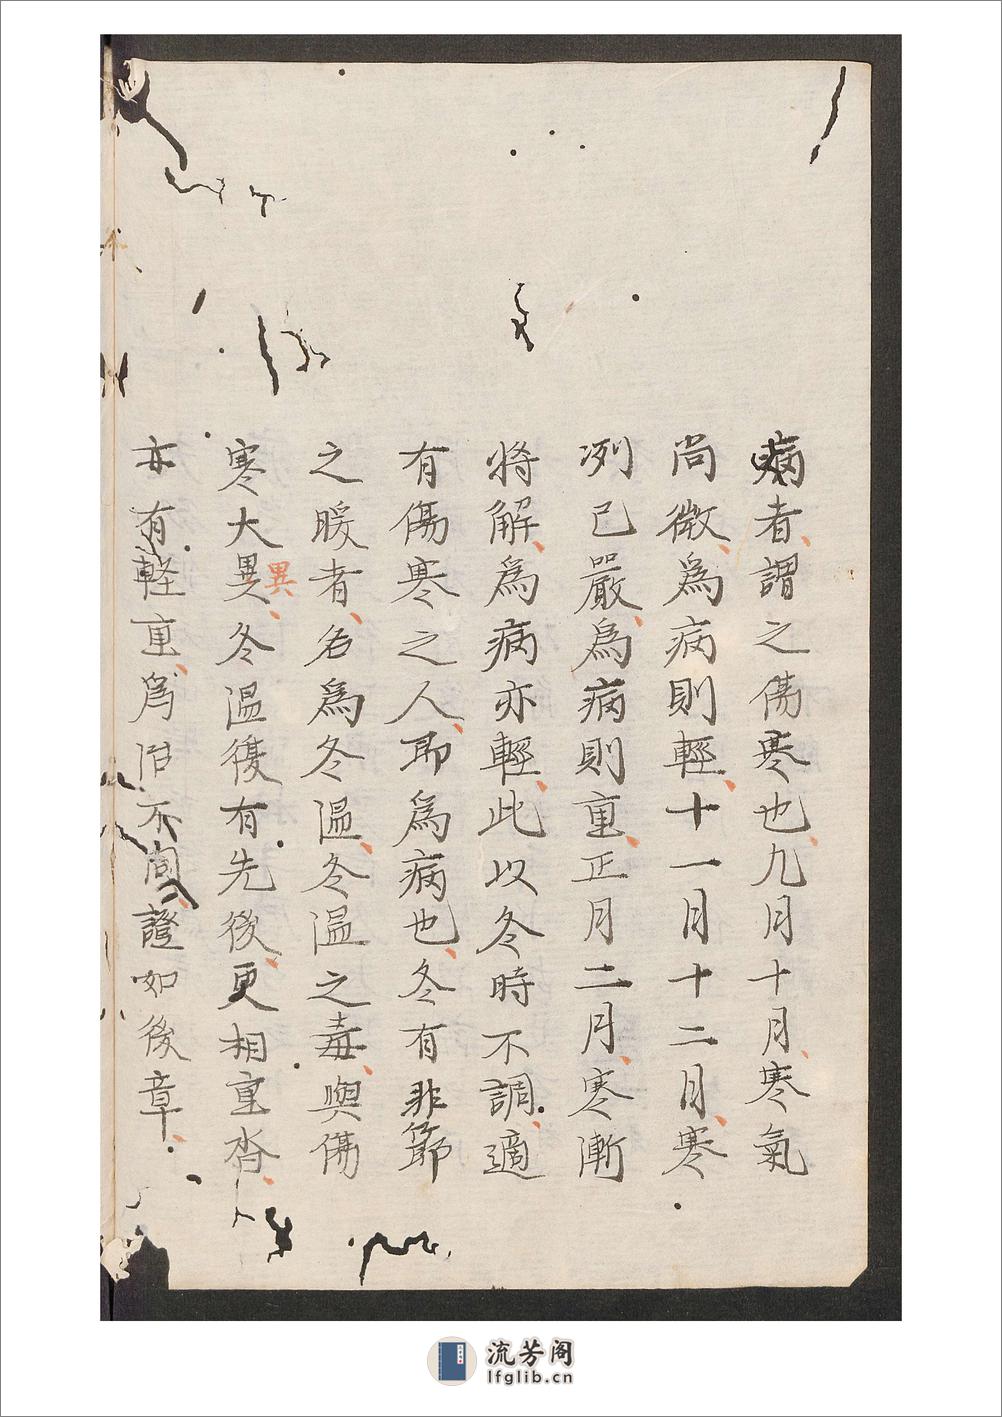 病者謂之傷寒也九月十月寒氣
尚微為病則輕十一月十二月寒
冽已嚴為病則重正月二月寒漸
將解為病亦輕此以冬時不調適
有傷寒之人即為病也冬有非節
之暖者名為冬溫冬溫之毒與傷
寒大異冬溫復有先後更相重沓
異
亦有輕重為治不同證如後章
流芳阁
lfglib.cn